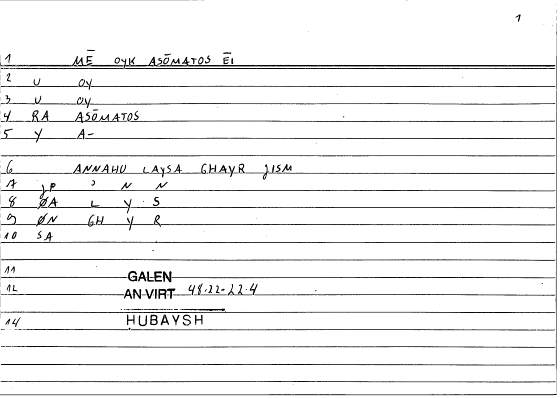 1
1 MĒ OYK ASŌMATOS ĒI
2 U OY
3 U OY
4 RA ASŌMATOS
5 Y A-
6 ANNAHU LAYSA GHAYR JISM
7 JP ' N N
8 ØA L Y S
9 ØN GH Y R
10 SA
11
GALEN
12 AN VIRT 48.22-22.4
14 HUBAYSH